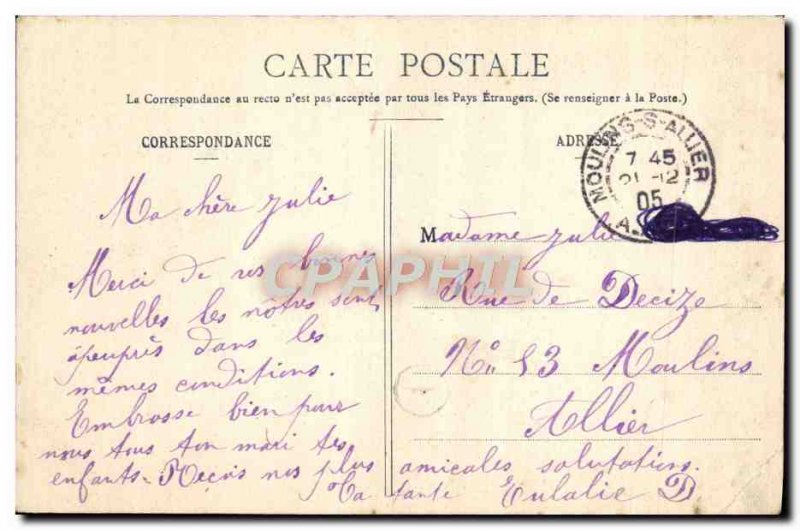 CARTE POSTALE
La Correspondance au recto n'est pas acceptée par tous les Pays Étrangers. (Se renseigner à la Poste.)
CORRESPONDANCE
Ma chère Julie
Merci de vos bonnes
nouvelles les nôtres sont
àpeuprès dans les
mêmes conditions.
Embrasse bien pour
nous tous ton mari tes
enfants. Reçois nos plus
amicales salutations.
Ta tante Eulalie D
ADRESSE
MOULINS-S-ALLIER
7 45
21 -12
05
Madame Julie
Rue de Decize
No 53 Moulins
Allier
CPAPHIL